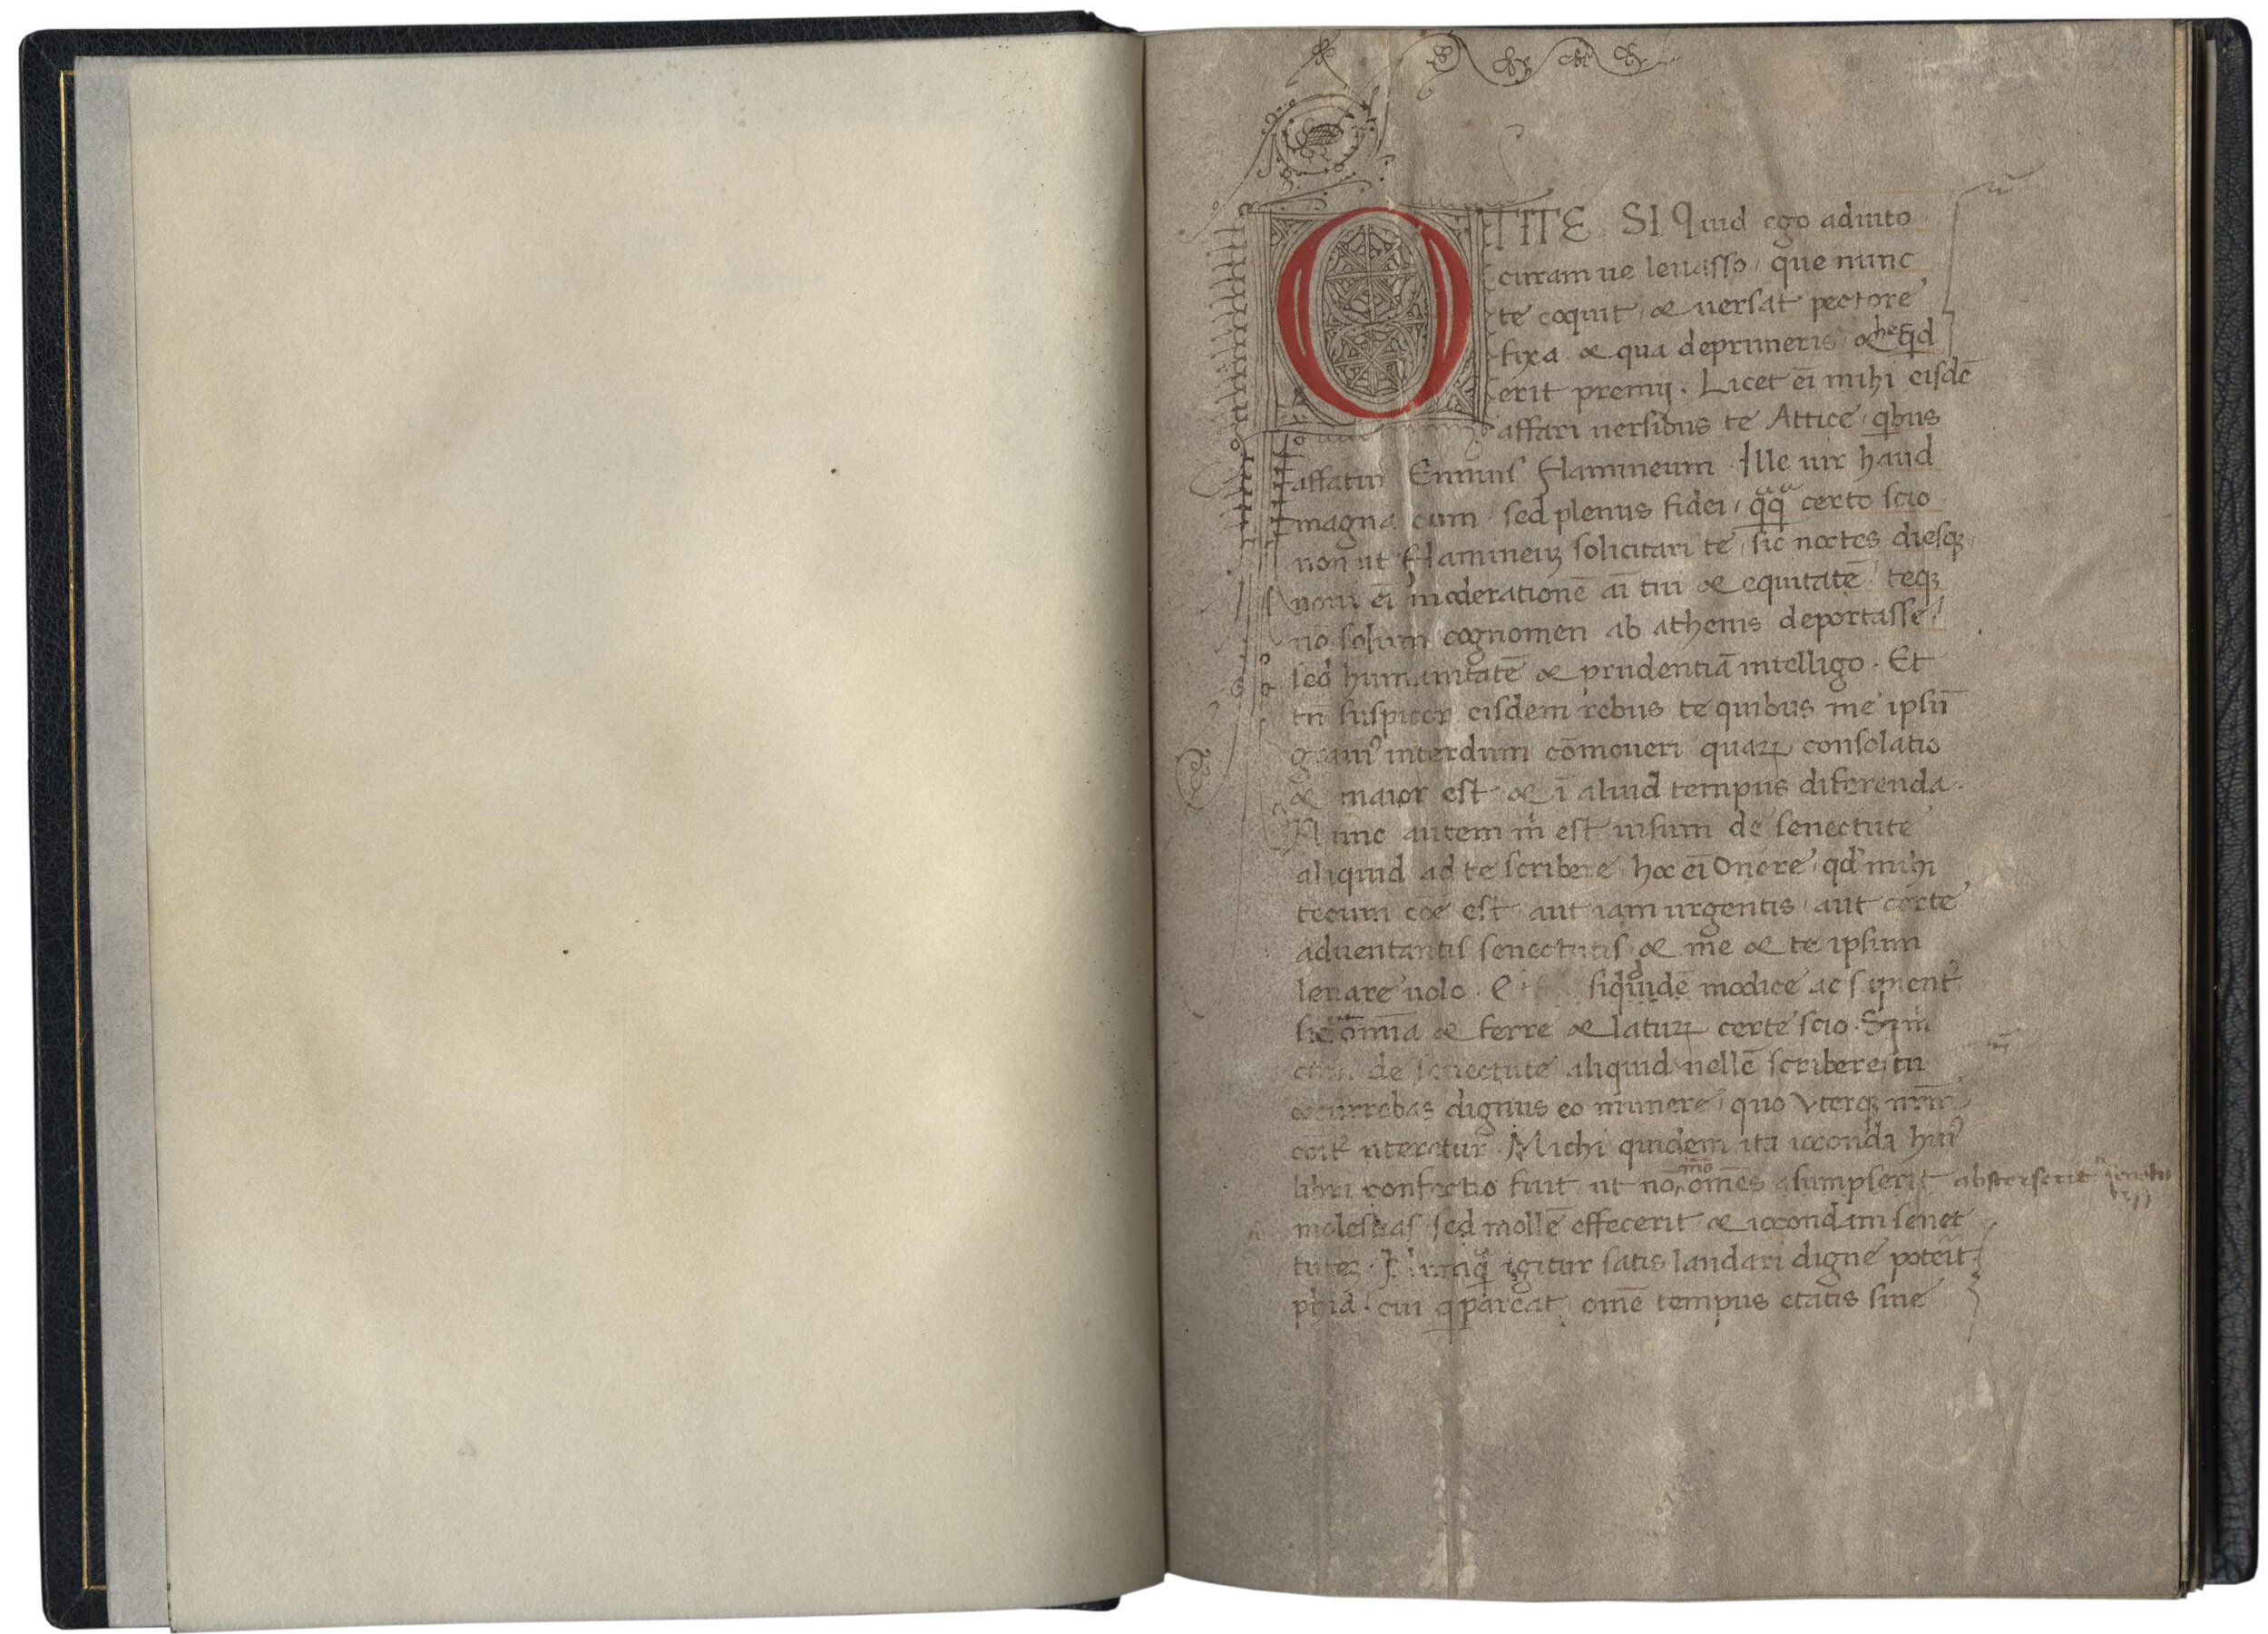 O TITE SI Quid ego adiuto
curam ue leuasso, que nunc
te coquit & uersat pectore
fixa & qua deprimeris, & hec qid
erit premij. Licet ei̅ mihi eisde̅
affari uersibus te Attice, qbus
affatur Ennius Flamineum. Ille uir haud
magna cum sed plenus fidei, qq̅ certo scio
non ut Flamineuʒ solicitari te, sic noctes diesqʒ
noui ei̅ moderatione̅ ai̅ tui & equitate̅, teqʒ
no̅ solum cognomen ab athenis deportasse,
sed humanitate̅ & prudentia̅ intelligo. Et
tn̅ suspicor eisdem rebus te quibus me ipsu̅
grauiꝰ interdum co̅moueri quaꝝ consolatio
& maior est & i̅ aliud tempus diferenda.
Nunc autem m̅ est uisum de senectute
aliquid ad te scribere, hoc ei̅ Onere, qd̅ mihi
tecum co̅e est aut iam urgentis, aut certe
aduentantis senectutis & me & te ipsum
leuare uolo. siquide̅ modice ac sapient̅
sic ut om̅ia & ferre & laturꝝ certe scio. Sȝ m̅
cum de senectute aliquid uelle̅ scribere, tu
occurrebas dignus eo munere, quo vterqʒ nr̅m
coit̅ uteretur. Michi quidem ita iocunda huiꝰ
libri confectio fuit, ut no̅ mo̅ om̅es asumpserit absterserit senectutis
molestias, sed molle̅ effecerit & iocondam senec
tuteʒ. Nunq̅ igitur satis laudari digne poterit
phi̅a. cui q pareat, om̅e tempus etatis sine